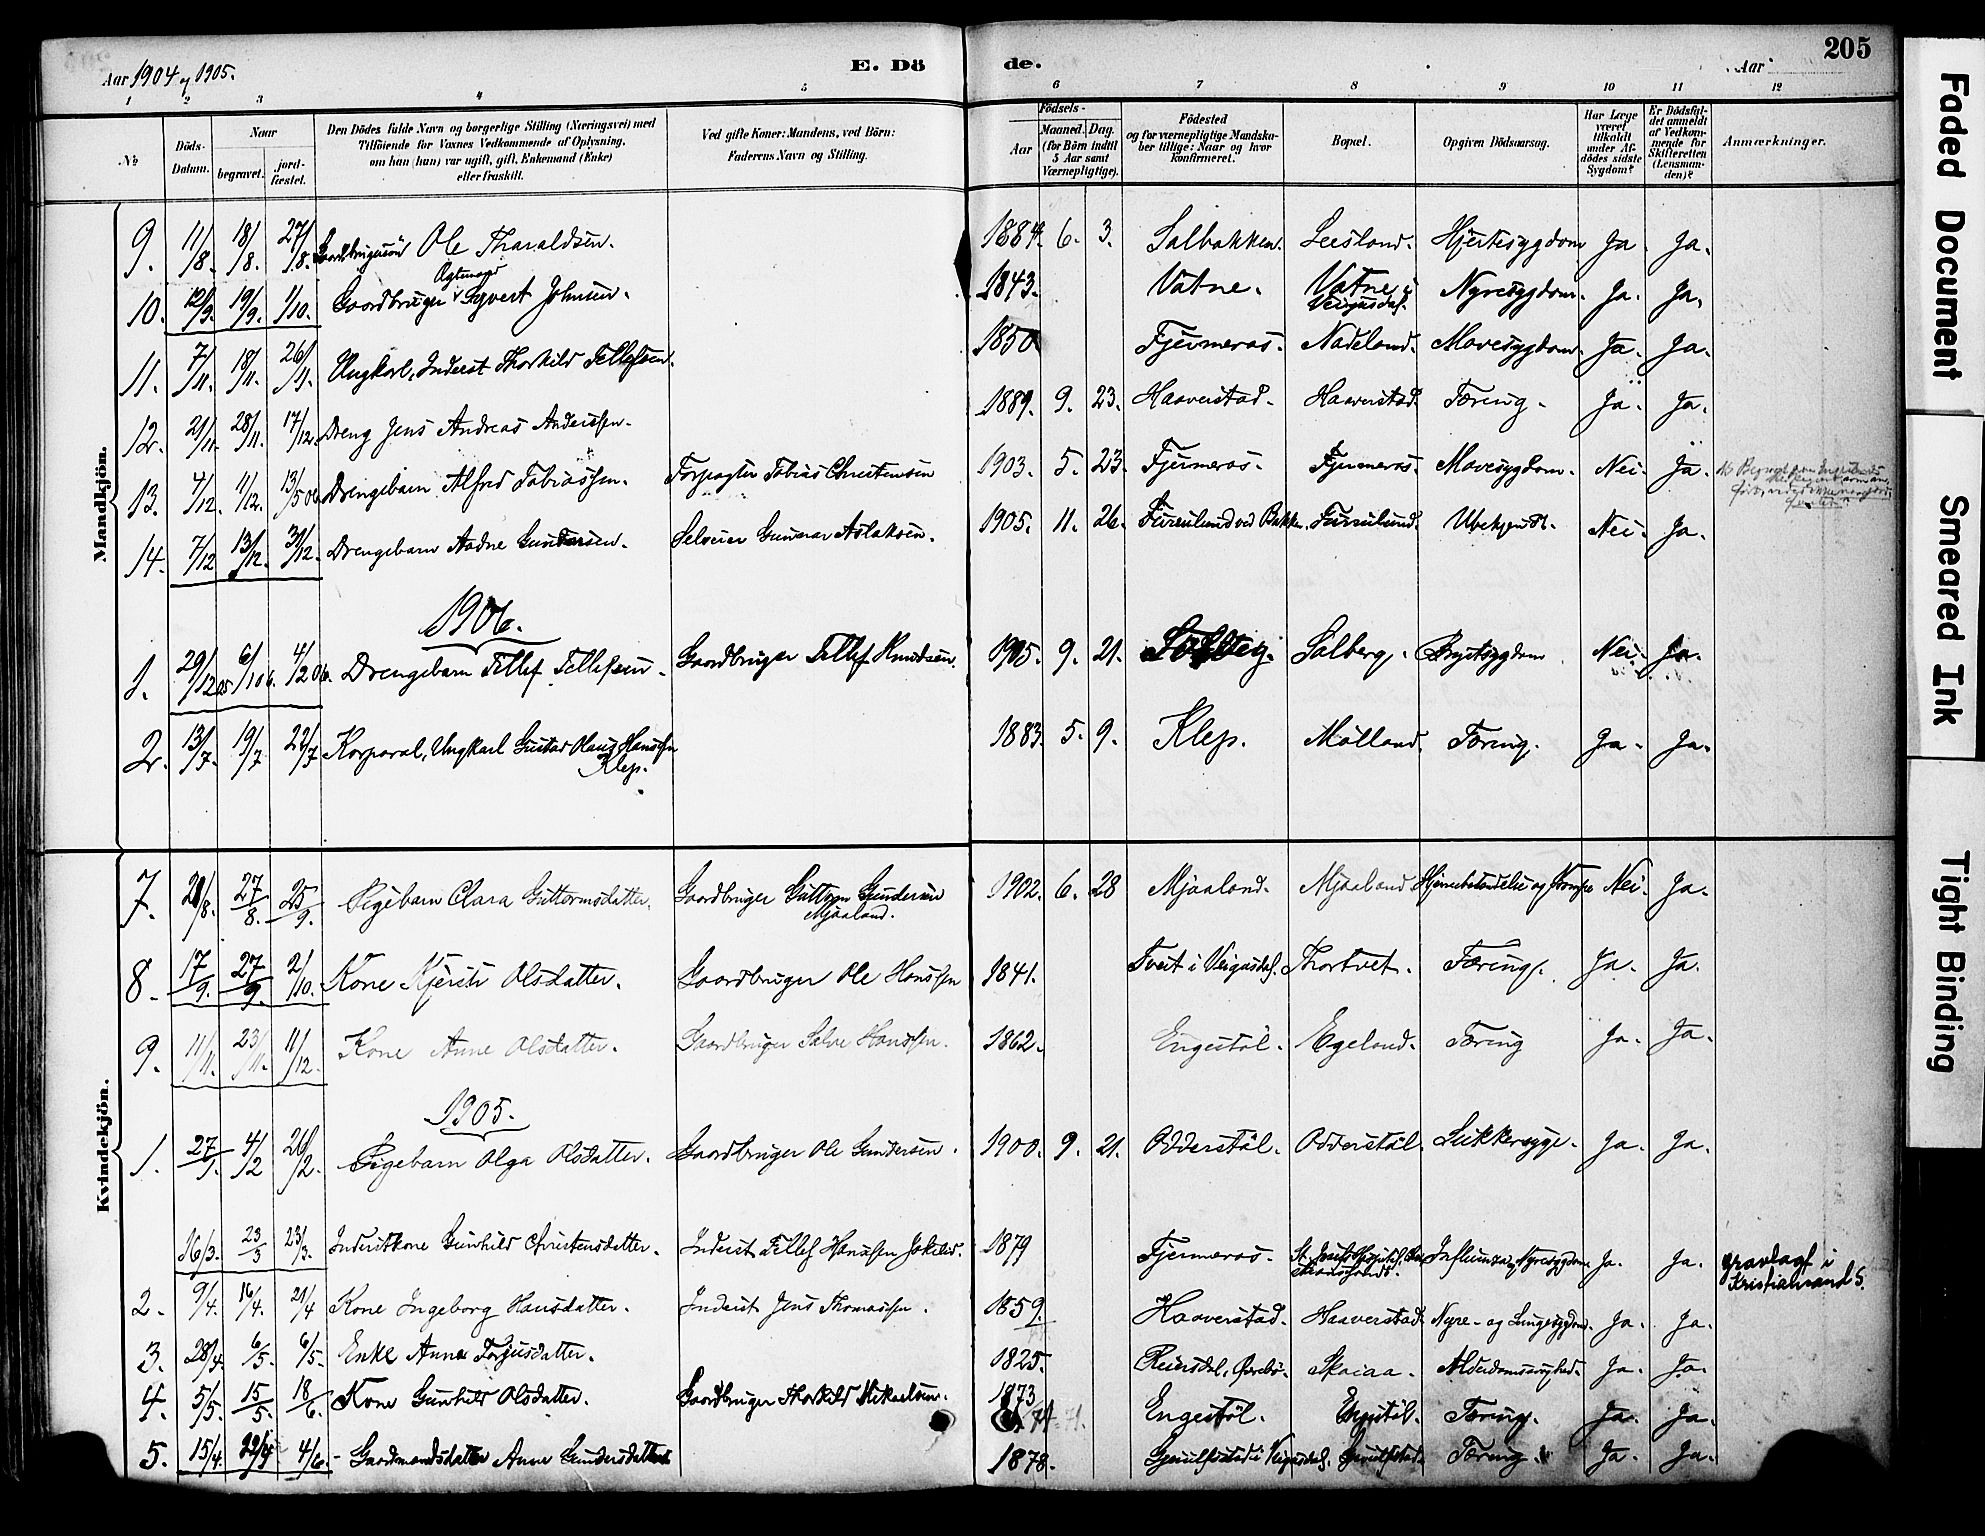 Aar 1904 og 1905.
E. Dö
de.
Aar
205
1 2 3 4 5 6 7 8 9 10 11 12
№
Döds-Datum.
Naar
begravet.
jord-fæstet.
Den Dödes fulde Navn og borgerlige Stilling (Næringsvei) med
Tilföiende for Voxnes Vedkommende af Oplysning,
om han (hun) var ugift, gift, Enkemand (Enke)
eller fraskilt.
Ved gifte Koner: Mandens, ved Börn:
Faderens Navn og Stilling.
Födsels-
Aar
Maaned. Dag.
(for Börn indtil
5 Aar samt
Værnepligtige).
Födested
og for værnepligtige Mandska-
ber tillige: Naar og hvor
konfirmeret.
Bopæl.
Opgiven Dödsaarsag.
Har Læge
været
tilkaldt
under Af-
dödes sidste
Sygdom?
Er Dödsfal-
det anmeldt
af Vedkom-
mende for
Skifteretten
(Lensman-
den)?
Anmærkninger.
Mandkjön.
9. 11/8. 18/8. 27/8. Ole Tharaldsen. 1884. 6. 3. Salbakken. Leesland. Hjertesygdom Ja. Ja.
Ogtemand
10. 12/9. 19/9. 1/10. Gaardbruger Syvert Johnsen. 1843. Vatne. Vatne i Nyresygdom. Ja. Ja.
Veigusdal.
11. 7/11. 18/11. 26/11. Ungkarl, Inderst Thorkild Tellefsen. 1850 Fjermeros. Nadeland. Mavesygdom. Ja. Ja.
12. 21/11. 28/11. 17/12. Dreng Jens Andreas Anderssen. 1889. 9. 23. Haaverstad. Haaverstad. Tæring. Ja. Ja.
13. 4/12. 11/12. 13/5 06. Drengebarn Alfred Tobiassen. Forpagter Tobias Christensen 1903. 5. 23. Fjermeros. Fjermeros. Mavesygdom. Nei. Ja.
14. 7/12 13/12. 31/12. Drengebarn Aadne Gundersen. Selveier Gunnar Aslaksen. 1905. 11. 26. Furulund ved Bakken. Furulund. Ubekjendt. Nei. Ja.
1906.
1. 29/12 05. 6/1 06. 4/2 06. Drengebarn Tellef Tellefsen. Gaardbruger Tellef Knudsen. 1905. 9. 21. Solberg. Brystsygdom. Nei. Ja.
2. 13/7. 19/7 22/7 Korporal, Ungkarl Gustav Hans Hanssen 1883. 5. 9. Klep. Mölland. Tæring. Ja. Ja.
Klep.
Kvindekjön.
7. 21/8. 27/8. 25/9. Pigebarn Clara Guttormsdatter. Gaardbruger Guttorm Gundersen 1902. 6. 28 Mjaaland. Mjaaland. Hjernebetændelse og Krampe Nei. Ja.
Mjaaland.
8. 17/9. 27/9. 2/10. Kone Kjersti Olsdatter. Gaardbruger Ole Hanssen 1841. Tveit i Veigusdal. Thortvet. Tæring. Ja. Ja.
9. 11/11. 23/11. 11/12. Kone Anne Olsdatter. Gaardbruger Salve Hanssen. 1862. Engestöl. Egeland. Tæring Ja. Ja.
1905.
1. 27/1. 4/2 26/2. Pigebarn Olga Olsdatter. Gaardbruger Ole Gundersen. 1900. 9. 21. Odderstöl. Odderstöl. Sukkersyge. Ja. Ja.
16/3. 23/3 23/3. Inderstkone Gunhild Christensdatter. Inderst Tellef Hanssen 1879 Fjermeros. St. Josefs Hospital, Influenza, Nyresygdom. Ja. Ja. gravlagt i
Kristiansand S.
2. 9/4. 16/4. 21/4 Kone Ingeborg Hansdatter. Inderst Jens Thomassen. 1859. Haaverstad. Haaverstad. Nyre- og Lungesygdom. Ja. Ja.
3. 28/4. 6/5. 6/5. Enke Anne Terjusdatter. 1825. Reiersdal, Skaiaa. Alderdomssvaghed. Ja. Ja.
4. 5/5. 15/5. 18/6. Kone Gunhild Olsdatter. Gaardbruger Thorkild Mikaelsen. 1873 Engestöl. Engestöl. Tæring. Ja. Ja.
5. 15/4. 22/4 4/6. Gaardmandsdatter Anne Gundersdatter 1878. Tæring. Ja. Ja.
Faded Document
Smeared Ink
Tight Binding